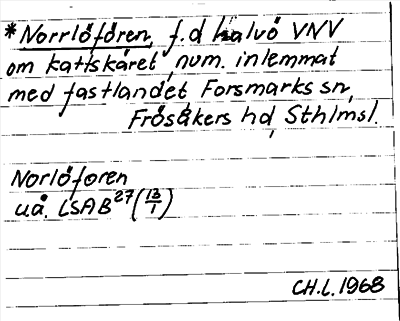 *Norrlöfören, f.d halvö VNV
om kattskäret, num. inlemmat
med fastlandet, Forsmarks sn,
Frösåkers hd, Sthlmsl.
Norlöforen
uå. LSAB27(13/1)
CH.L. 1968